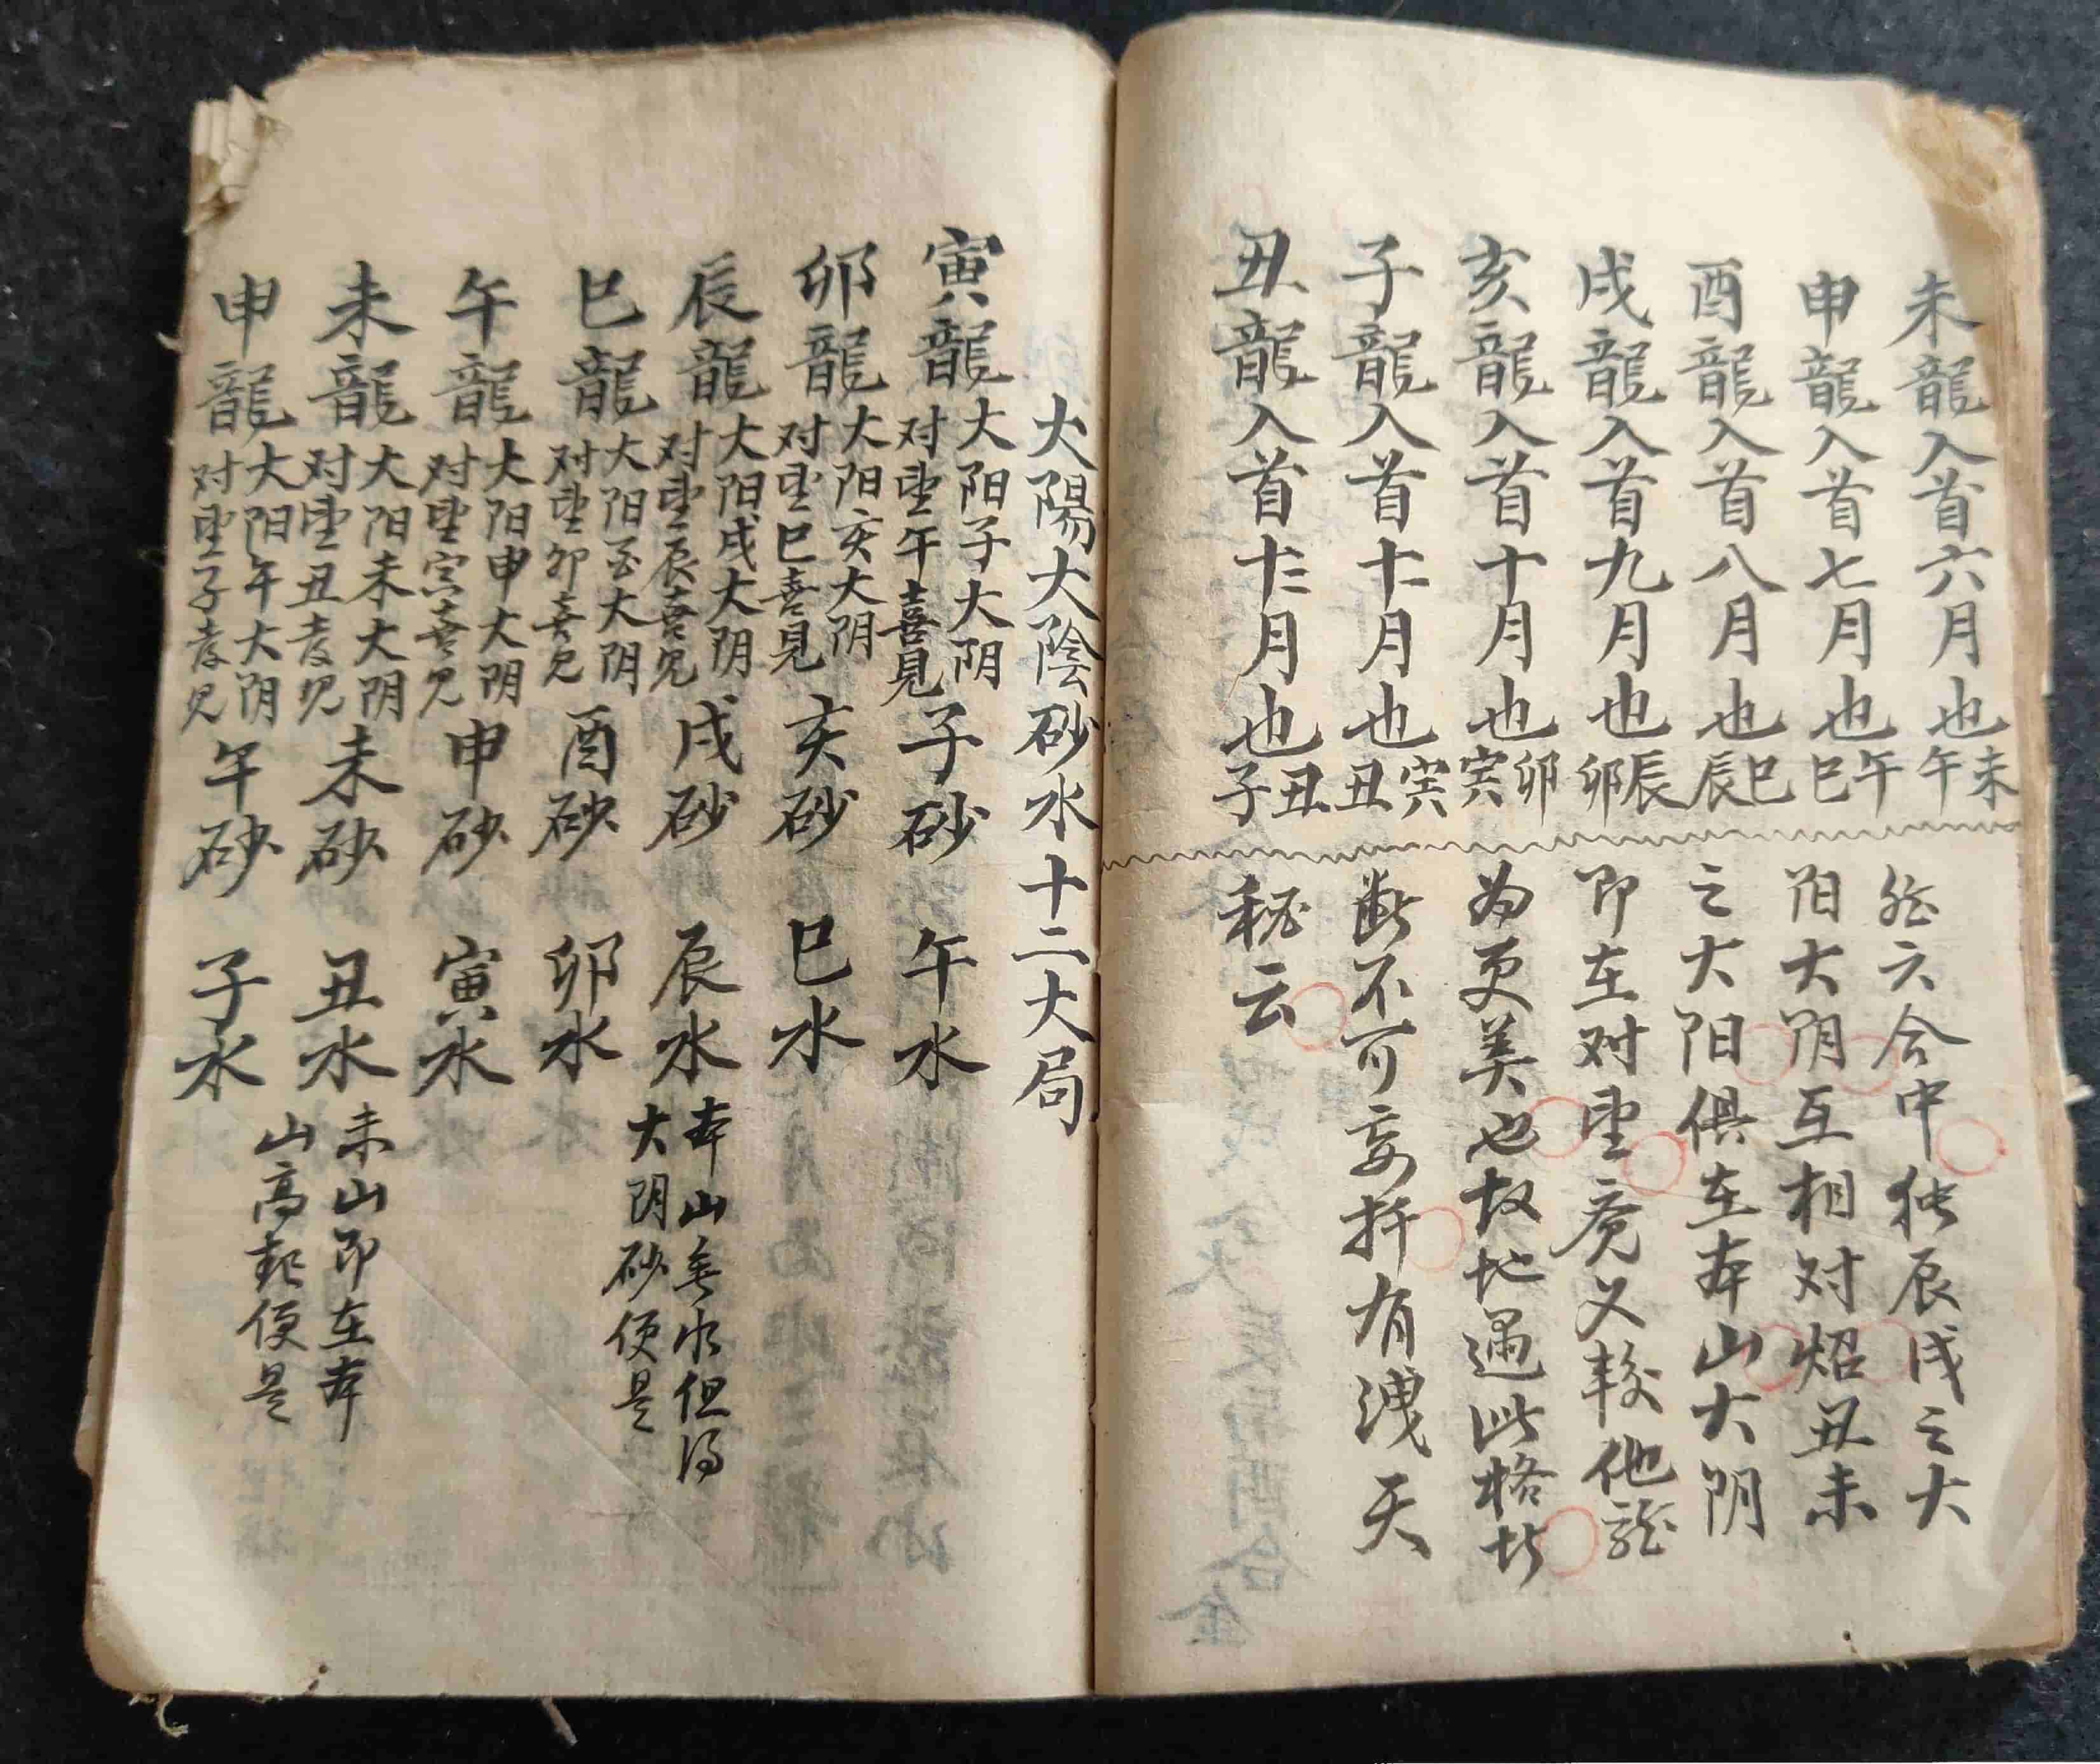 未龍入首六月也午未
申龍入首七月也巳午
酉龍入首八月也辰巳
戌龍入首九月也卯辰
亥龍入首十月也寅卯
子龍入首十一月也丑寅
丑龍入首十二月也子丑
然六合中独辰戌之大
阳大阴互相对炤丑未
之大阳俱在本山大阴
即在对望竟又較他龍
为更美也故地遇此格局
断不可妄扦有洩天
秘云
大陽大陰砂水十二大局
寅龍大阳子大阴对望午喜見子砂午水
卯龍大阳亥大阴对望巳喜見亥砂巳水
辰龍大阳戌大阴对望辰喜見戌砂辰水本山無水但得大阴砂便是
巳龍大阳酉大阴对望卯喜見酉砂卯水
午龍大阳申大阴对望寅喜見申砂寅水
未龍大阳未大阴对望丑喜見未砂丑水未山即在本山高起便是
申龍大阳午大阴对望子喜見午砂子水